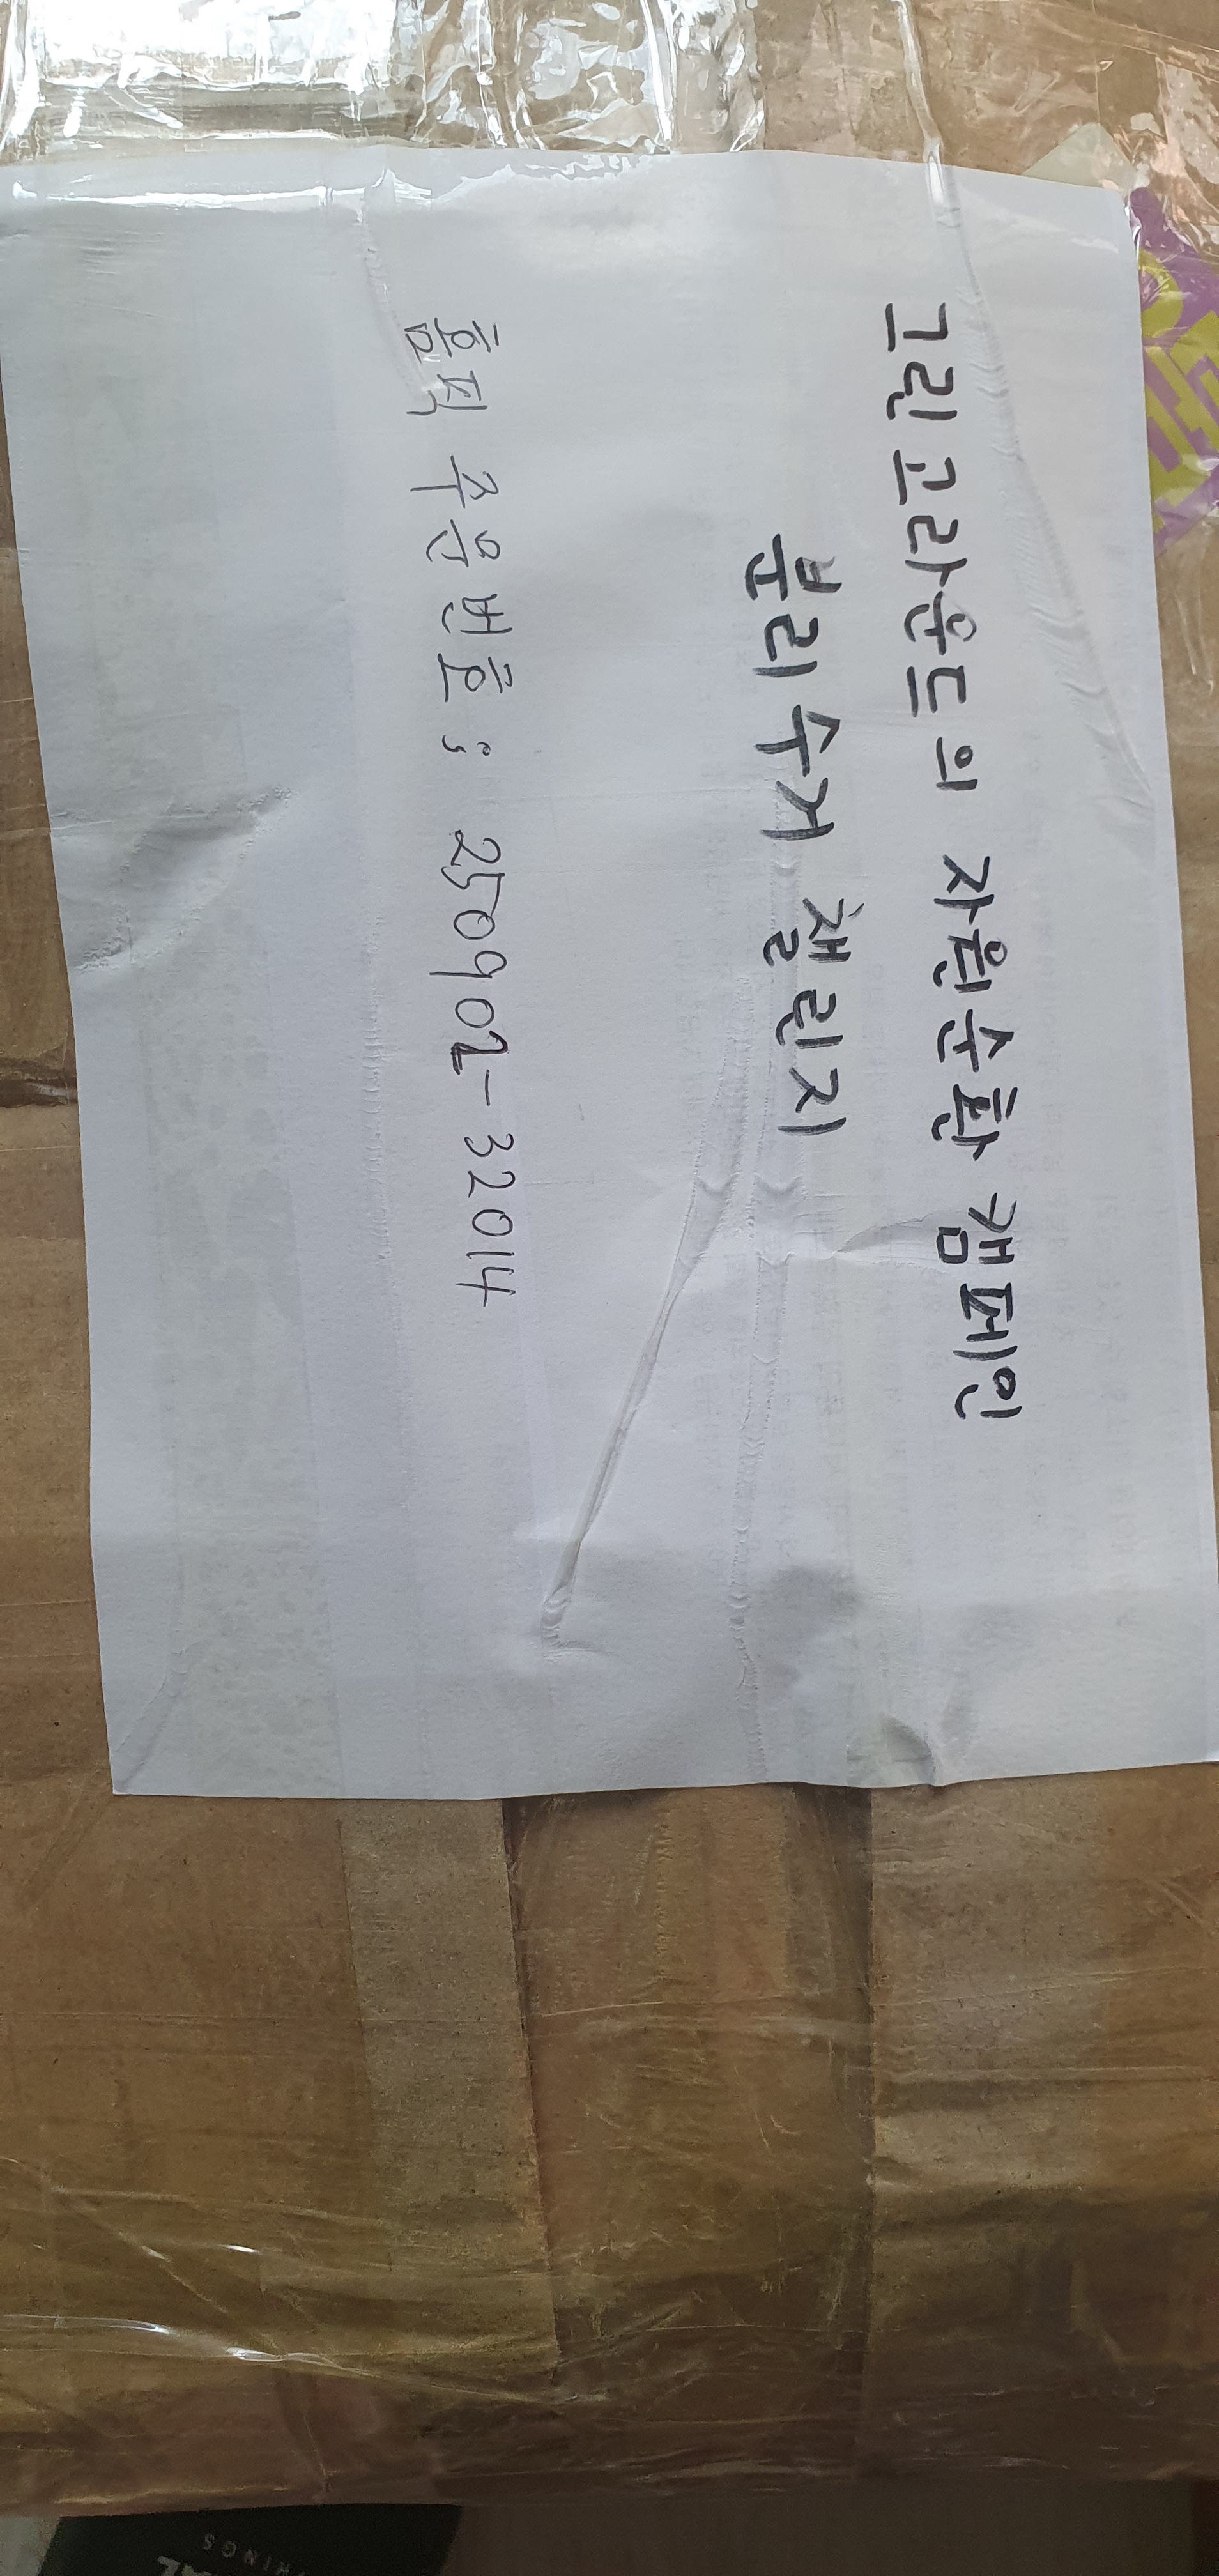 그린고라운드의 자원순환 캠페인
분리수거 챌린지
홈픽 주문번호 : 250902-32014